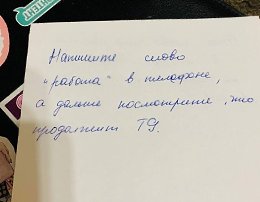 Напишите слово
"работа" в телефоне,
а дальше посмотрите, что
продолжит Т9.